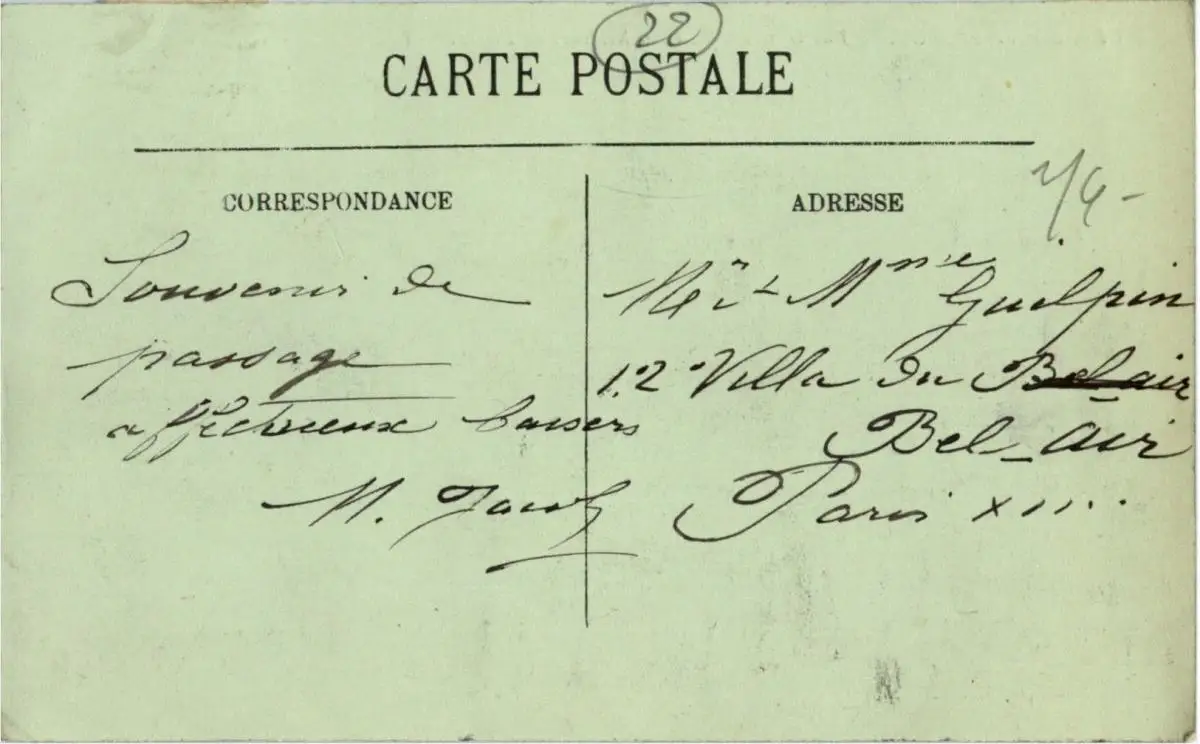 22
CARTE POSTALE
CORRESPONDANCE
Souvenir de
passage
affectueux baisers
M. Jacob
ADRESSE
Mr et Mme Guelpin
12 Villa du Bel-air
Bel-air
Paris XII